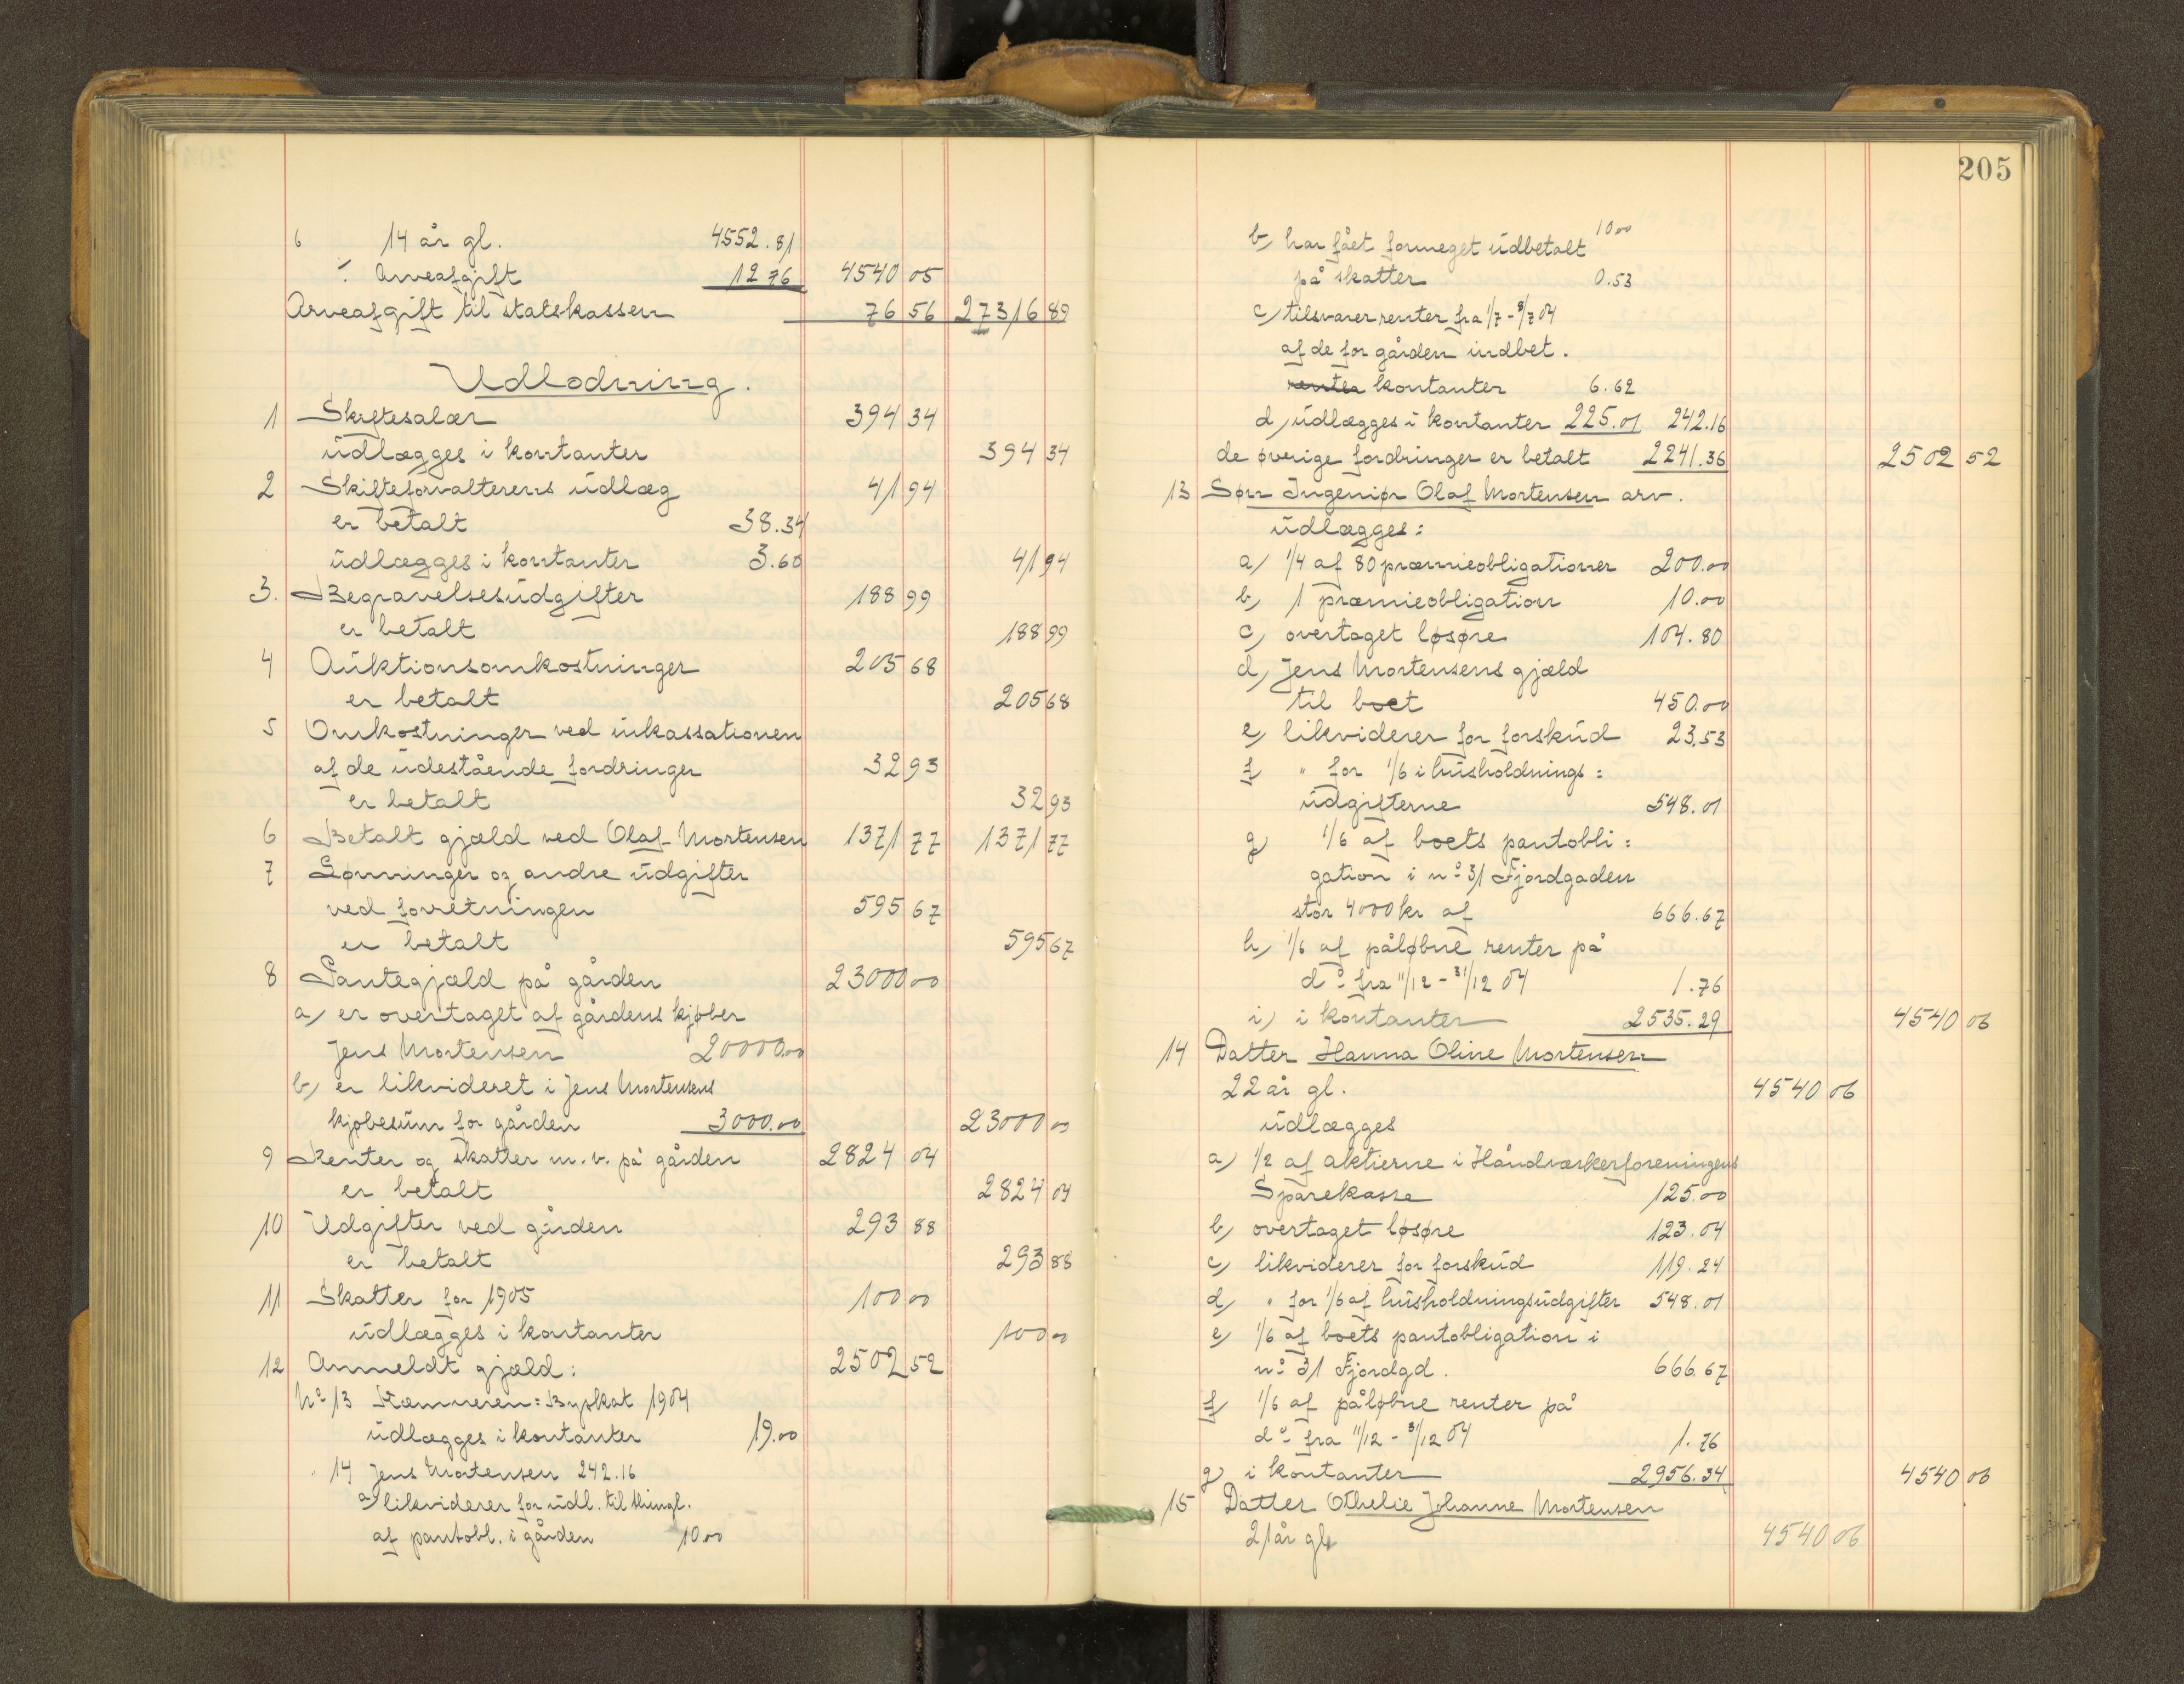 6 14 år gl. 4552.81
÷ Arveafgift 12 76 4540 05
Arveafgift til statskassen 76 56 27316 89
Udlodning.
1 Skiftesalær 394 34
udlægges i kontanter 394 34
2 Skifteforvalterens udlæg 41 94
er betalt 38.34
udlægges i kontanter 3.60 41 94
3. Begravelsesudgifter 188 99
er betalt 188 99
4 Auktionsomkostninger 205 68
er betalt 205 68
5 Omkostninger ved inkassationen
af de udestående fordringer 32 93
er betalt 32 93
6 Betalt gjæld ved Olaf Mortensen 1371 77 1371 77
7 Lønninger og andre udgifter
ved forretningen 595 67
er betalt 595 67
8 Pantegjæld på gården 23000 00
a) er overtaget af gårdens kjøber
Jens Mortensen 20000.00
b) er likvideret i Jens Mortensens
kjøbesum for gården 3000.00 23000 00
9 Renter og skatter m.v. på gården 2824 04
er betalt 2824 04
10 Udgifter ved gården 293 88
er betalt 293 88
11 Skatter for 1905 100 00
udlægges i kontanter 100 00
12 Anmeldt gjæld: 2502 52
No 13 Kæmneren: Byskat 1904
udlægges i kontanter 19.00
" 14 Jens Mortensen 242.16
a) likviderer for udl. til thingl.
af pantobl. i gården 10 00
205
10 00
b) har fået formeget udbetalt
på skatter 0.53
c) tilsvarer renter fra 1/7 - 8/7 04
af de for gården indbet.
renter kontanter 6.62
d) udlægges i kontanter 225.01 242.16
de øvrige fordringer er betalt 2241.36 2502 52
13 Søn Ingeniør Olaf Mortensen arv.
udlægges:
a) 1/4 af 80 præmieobligationer 200.00
b) 1 præmieobligation 10.00
c) overtaget løsøre 104.80
d) Jens Mortensens gjæld
til boet 450.00
e) likviderer for forskud 23.53
f " for 1/6 i husholdnings:
udgifterne 548.01
g) 1/6 af boets pantobli:
gation i no 31 Fjordgaden
stor 4000 kr af 666.67
h) 1/6 af påløbne renter på
do fra 11/12 - 31/12 04 1.76
i) i kontanter 2535.29 4540 06
14 Datter Hanna Oline Mortensen
22 år gl. 4540 06
udlægges
a) 1/2 af aktierne i Håndværkerforeningens
Sparekasse 125.00
b) overtaget løsøre 123.04
c) likviderer for forskud 119.24
d) " for 1/6 af husholdningsudgifter 548.01
e) 1/6 af boets pantobligation i
no 31 Fjordgd. 666.67
f 1/6 af påløbne renter på
do fra 11/12 - 31/12 04 1.76
g) i kontanter 2956.34 4540 06
15 Datter Othelie Johanne Mortensen
21 år gl. 4540 06